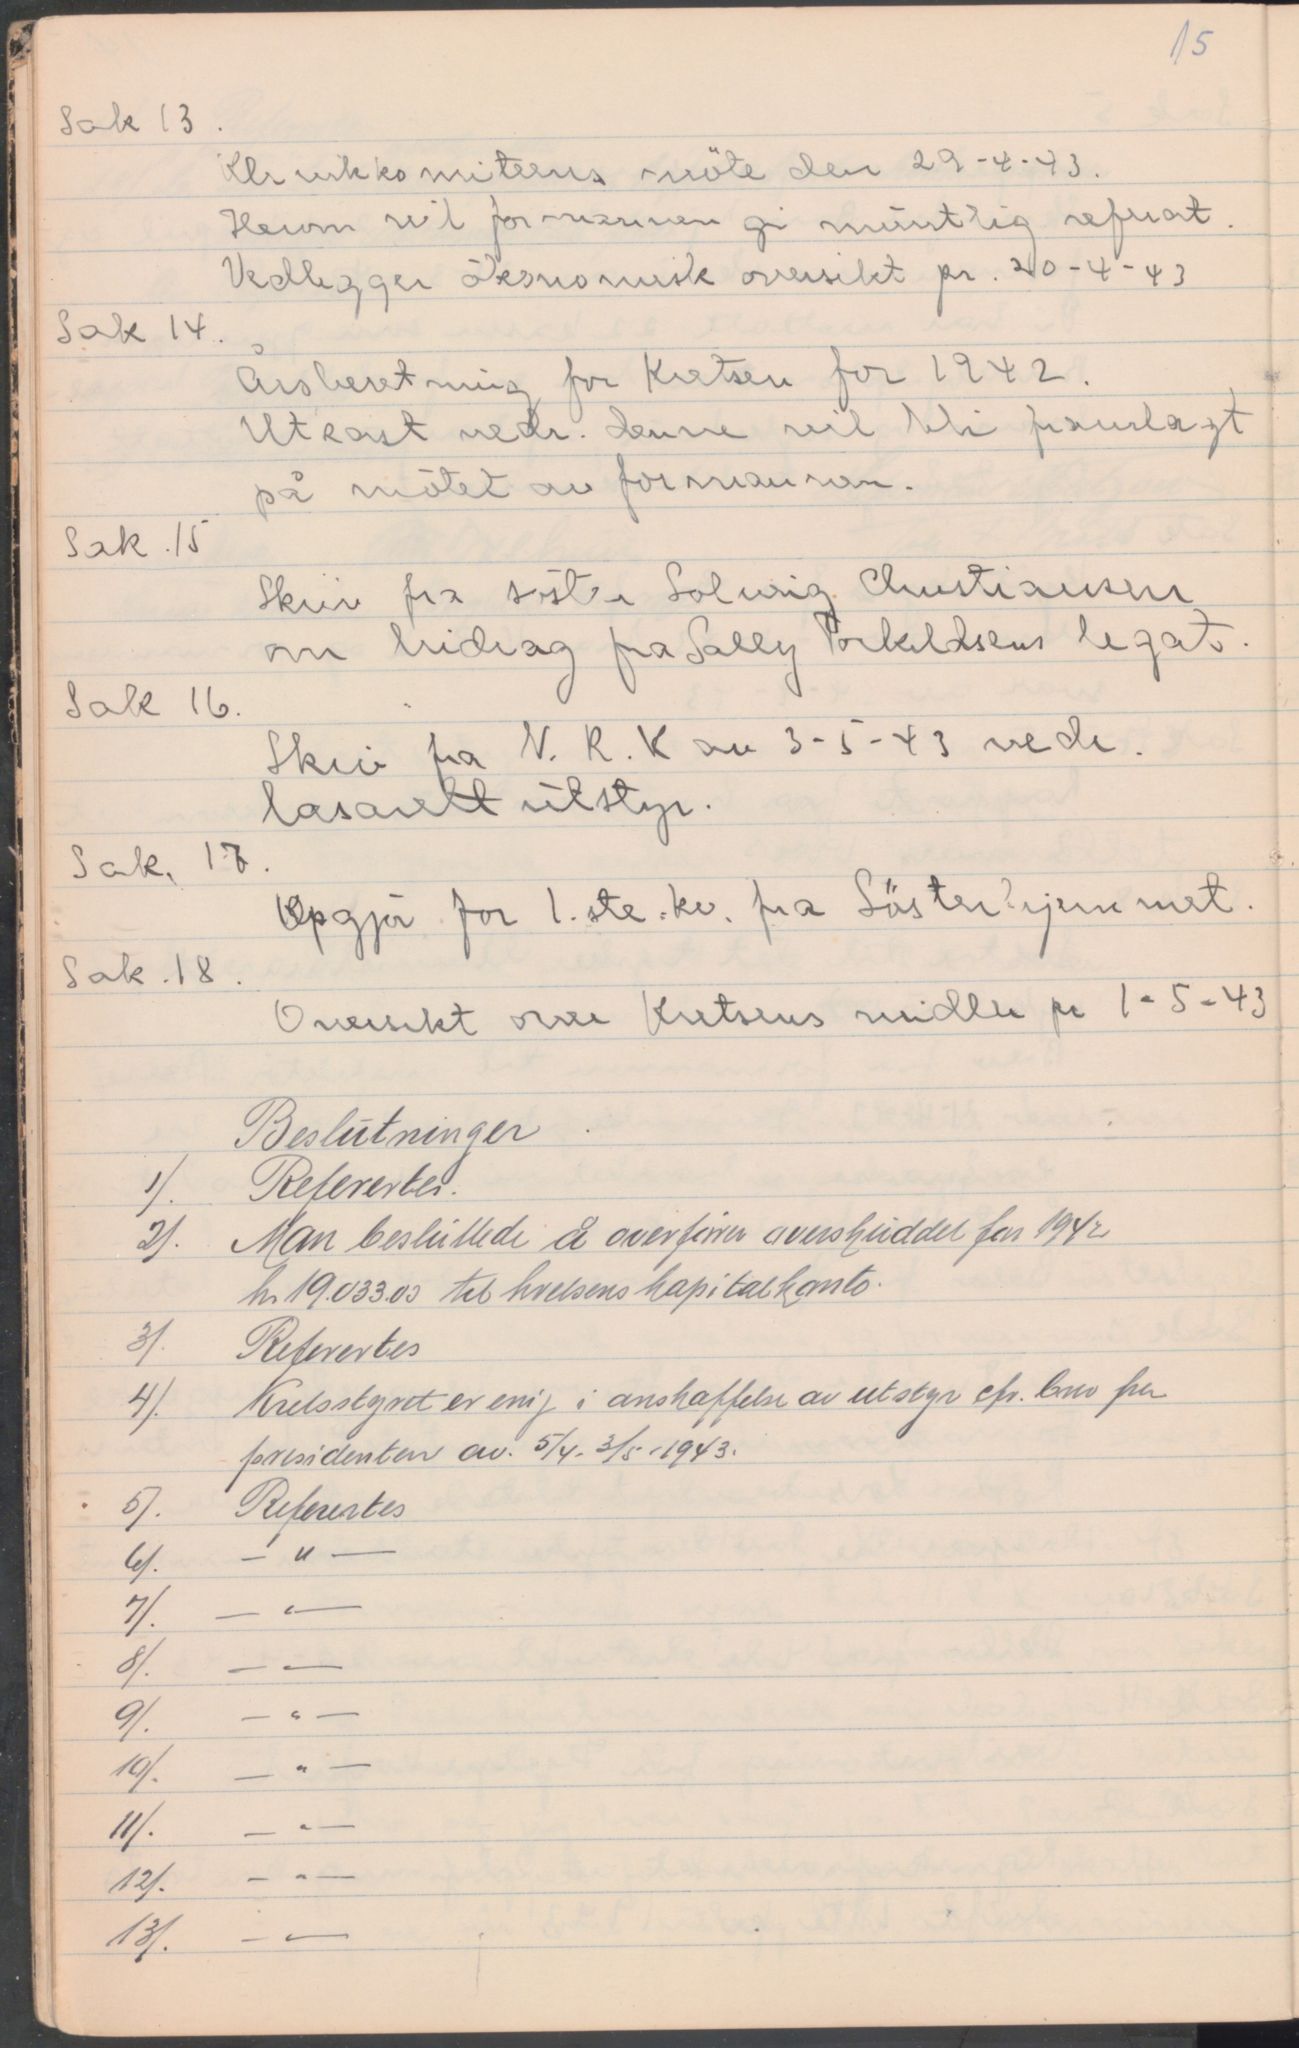 15
Sak 13.
Klinikkomiteens möte den 29-4-43.
Herom vil formannen gi muntlig referat.
Vedlegger ökonomisk oversikt pr. 20-4-43
Sak 14.
Årsberetning for Kretsen for 1942.
Utkast vedr. denne vil bli framlagt
på mötet av formannen.
Sak .15
Skriv fra söster Solveig Christiansen
om bidrag fra Sally Torkeldsens legat.
Sak 16.
Skriv fra N. R. K av 3-5-43 vedr.
lasarettutstyr.
Sak. 17.
Opgjör for 1.ste .kv. fra Söster hjemmet.
Sak .18.
Oversikt over Kretsens midler pr 1-5-43
Beslutninger
1/. Referertes.
2/. Man besluttede å overfører overskuddet for 1942
kr 19.033.03 til kretsens kapitalkonto.
3/. Referertes
4/. Kretsstyret er enig i anskaffelse av utstyr cfr. brev fra
presidenten av. 5/4 - 3/5 - 1943.
5/. Referertes
6/. — " —
7/. — " —
8/. — —
9/. — " —
10/. — " —
11/. — " —
12/. — " —
13/. — —